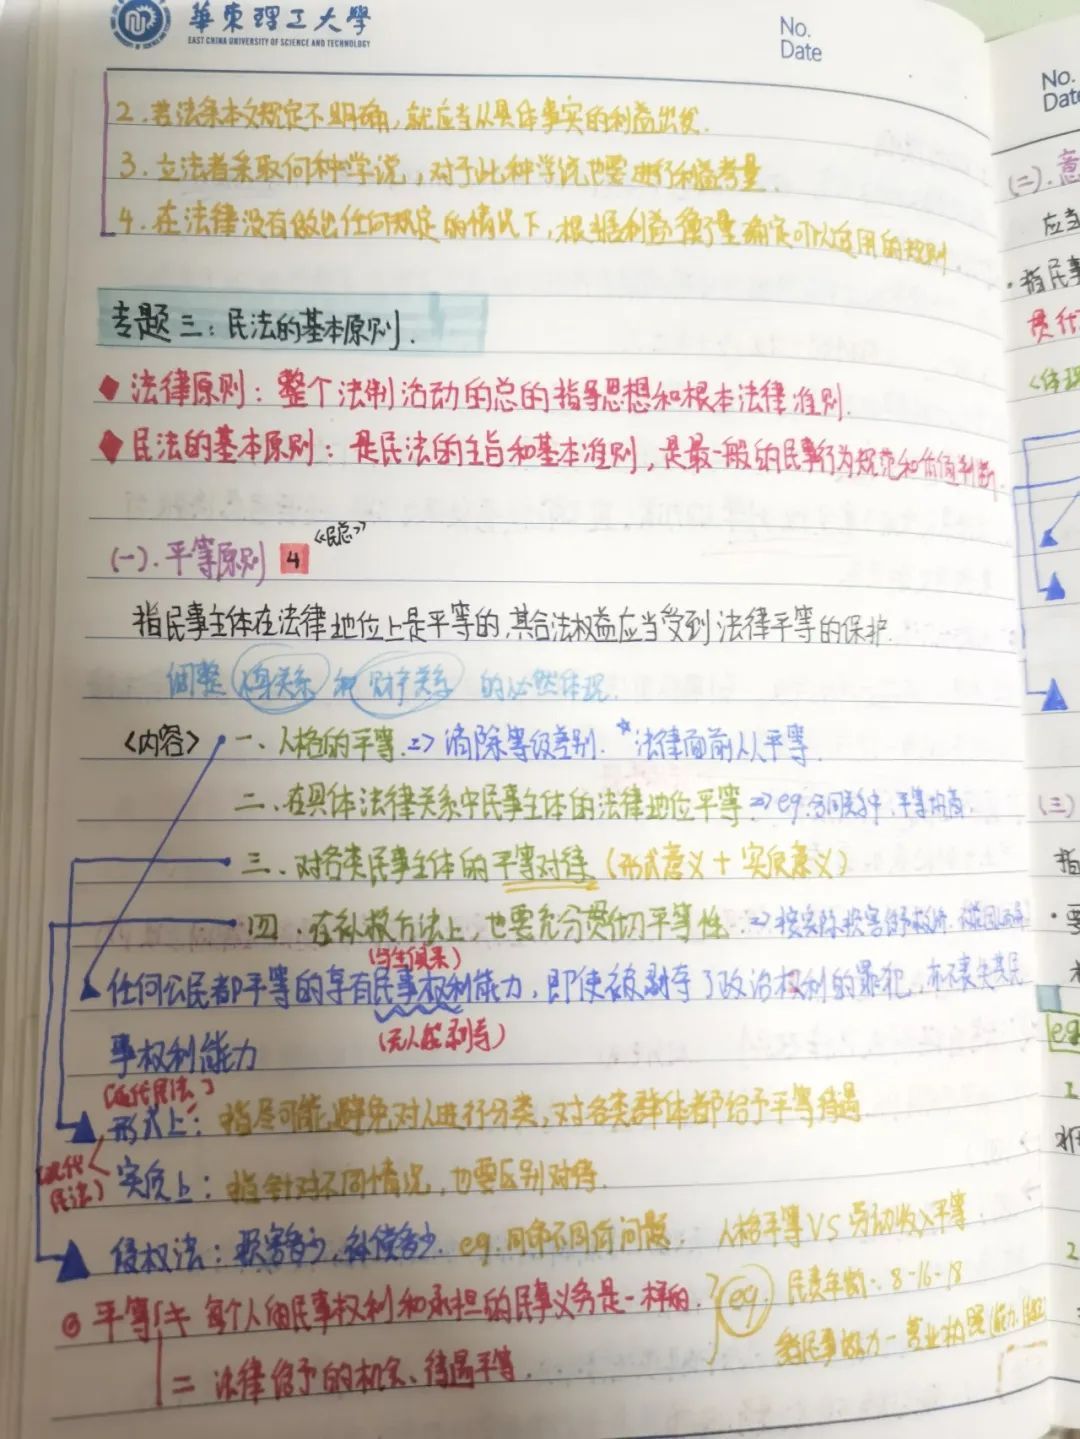 華東理工大學
EAST CHINA UNIVERSITY OF SCIENCE AND TECHNOLOGY
No.
Date
2.若法条本文规定不明确,就应当从具体事实的利益出发.
3.立法者采取何种学说,对于此种学说也要进行利益考量.
4.在法律没有做出任何规定的情况下,根据利益衡量确定可以适用的规则.
专题三:民法的基本原则.
◆法律原则:整个法制活动的总的指导思想和根本法律准则.
◆民法的基本原则:是民法的主旨和基本准则,是最一般的民事行为规范和价值判断.
(一).平等原则 4 《民总》
指民事主体在法律地位上是平等的,其合法权益应当受到法律平等的保护.
调整人身关系和财产关系的必然体现.
<内容> 一、人格的平等.=>消除等级差别. *法律面前人人平等.
二、在具体法律关系中民事主体的法律地位平等=>eg.合同关系中,平等协商.
三、对各类民事主体的平等对待(形式意义+实质意义)
四、在补救方法上,也要充分贯彻平等性.=>按实际损害给予
(与生俱来)
任何公民都平等的享有民事权利能力,即使被剥夺了政治权利的罪犯,亦不丧失其民
事权利能力 (无人能剥夺)
[近代民法]
形式上:指尽可能避免对人进行分类,对各类群体都给予平等待遇.
[现代民法] 实质上:指针对不同情况,也要区别对待.
侵权法:损害多少,补偿多少. eg.同命不同价问题. 人格平等VS劳动收入平等.
◎平等 ≠ 每个人的民事权利和承担的民事义务是一样的. eg. 民责年龄:8-16-18
= 法律给予的机会、待遇平等. 营业执照
No.
Date
(二).意
应当
·指民事
(三)
指
eg
1
2